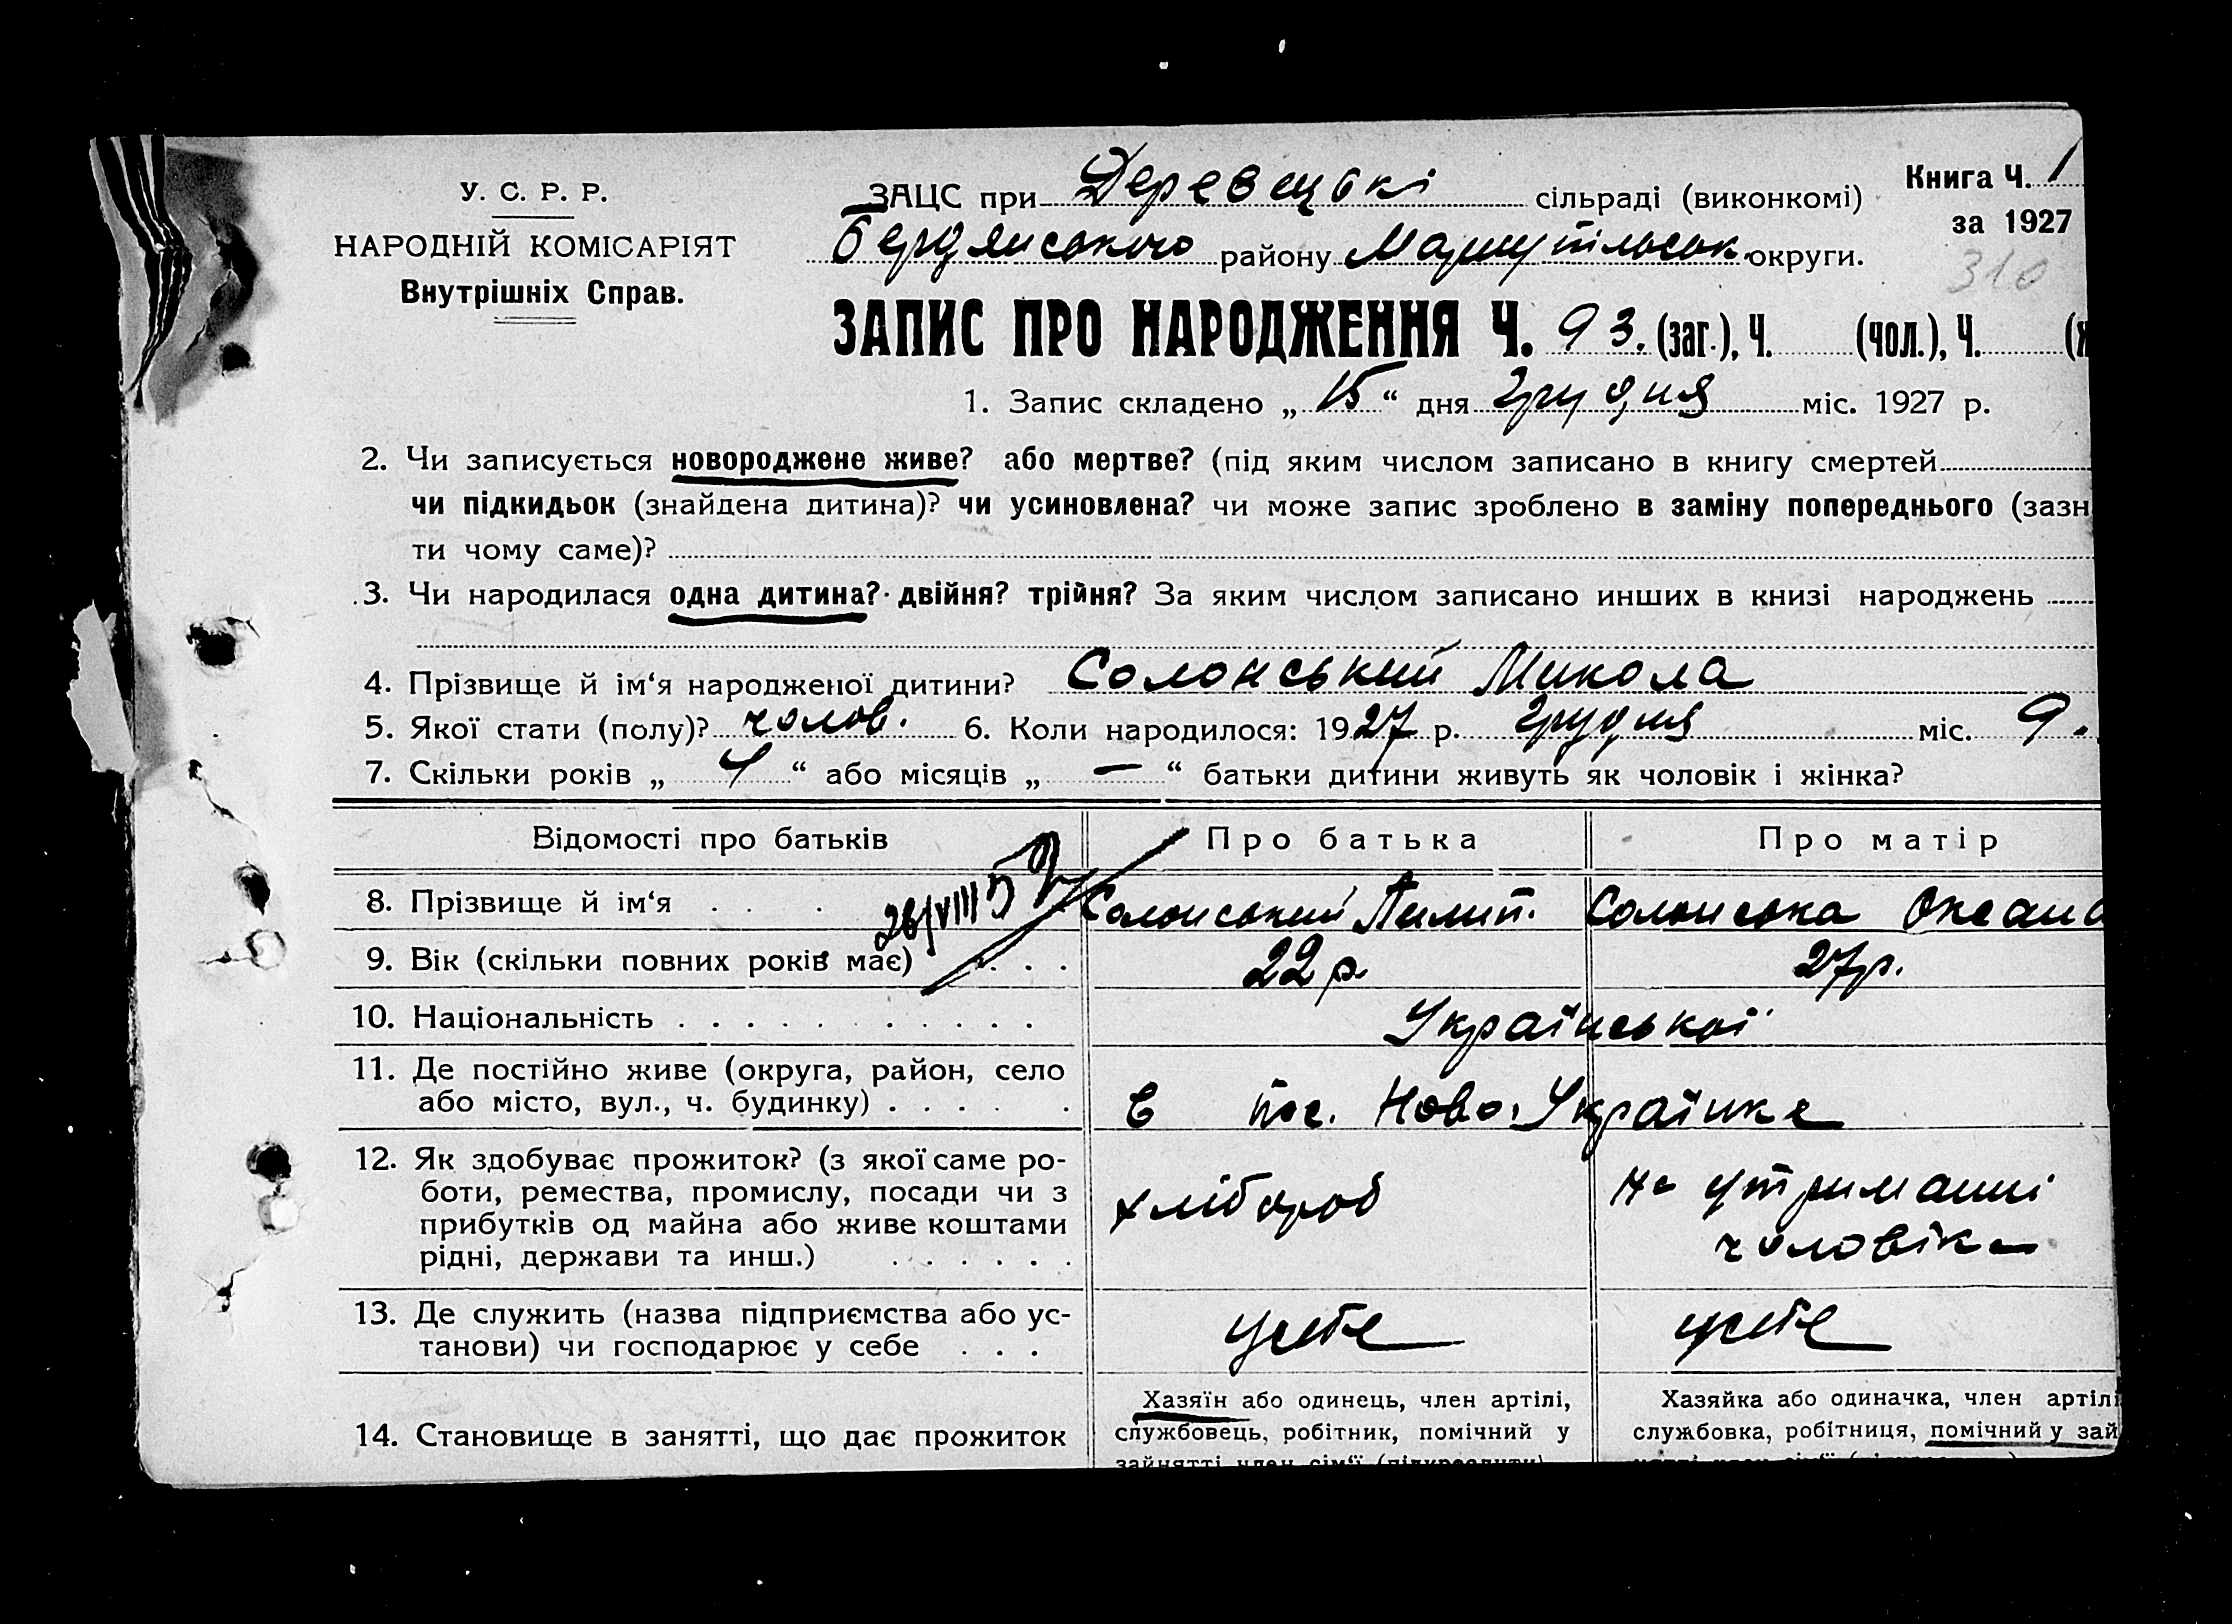 У. С. Р. Р.
НАРОДНІЙ КОМІСАРІЯТ
Внутрішніх Справ.
ЗАЦС при Деревецькі сільраді (виконкомі)
Бердянського району Маріупільськ. округи.
Книга Ч. 1
за 1927
310
ЗАПИС ПРО НАРОДЖЕННЯ Ч. 93. (заг.), Ч. (чол.), Ч. (ж
1. Запис складено „ 15 “ дня Грудня міс. 1927 р.
2. Чи записується новороджене живе? або мертве? (під яким числом записано в книгу смертей
чи підкидьок (знайдена дитина)? чи усиновлена? чи може запис зроблено в заміну попереднього (зазн
ти чому саме)?
3. Чи народилася одна дитина? двійня? трійня? За яким числом записано инших в книзі народжень
4. Прізвище й ім‘я народженої дитини? Солонський Микола
5. Якої стати (полу)? чолов. 6. Коли народилося: 1927 р. Грудня міс. 9.
7. Скільки років „ 4 “ або місяців „ — “ батьки дитини живуть як чоловік і жінка?
Відомості про батьків Про батька Про матір
8. Прізвище й ім‘я . . . Солонський Пилип. Солонська Оксана
26/VIII 52
9. Вік (скільки повних років має) . . . 22 р. 27 р.
10. Національність . . . . . . . . . . . Української
11. Де постійно живе (округа, район, село
або місто, вул., ч. будинку) . . . . . в пос. Ново-Українке
12. Як здобуває прожиток? (з якої саме ро-
боти, ремества, промислу, посади чи з
прибутків од майна або живе коштами
рідні, держави та инш.) . . . . . .
хлібороб
на утриманні
чоловіка
13. Де служить (назва підприємства або ус-
танови) чи господарює у себе . . .
у себе
у себе
14. Становище в занятті, що дає прожиток
Хазяїн або одинець, член артілі,
службовець, робітник, помічний у
зайнятті член сім‘ї (підкреслити)
Хазяйка або одиначка, член артілі
службовка, робітниця, помічний у зай